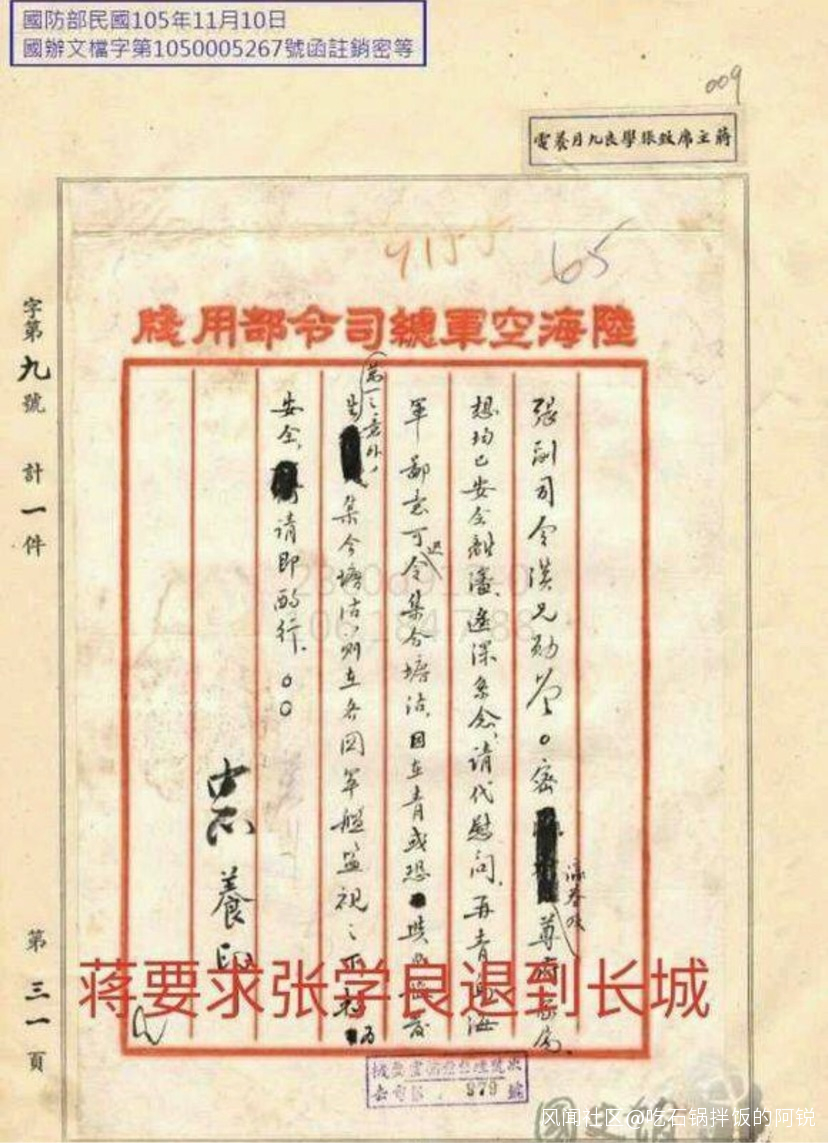 國防部民國105年11月10日
國辦文檔字第1050005267號函註銷密等
009
蔣主席致張學良九月養電
65
陸海空軍總司令部用牋
張副司令漢兄勛鑒○密瀛眷及尊府家屬
想均已安全離瀋、遙深系念、請代慰問、再青島海
軍鄙意可迅令集合塘沽、因在青或恐與
生萬一之意外、集合塘沽、則在各國軍艦監視之下
安全、請即酌行、○○
中正 養印
字第九號 計一件
第三一頁
蒋要求张学良退到长城
979
风闻社区@吃石锅拌饭的阿锐